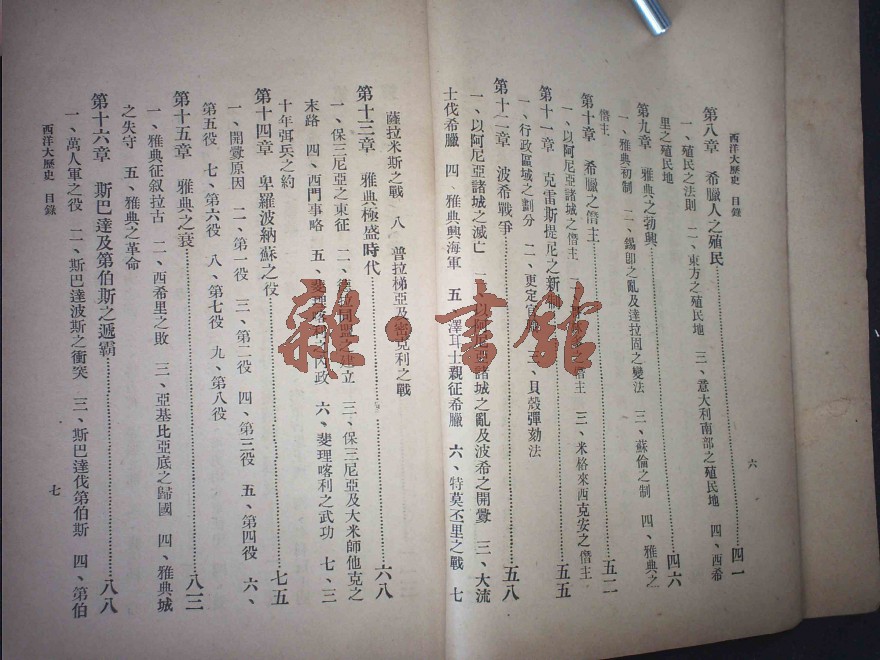 西洋大歷史　目錄
第八章　希臘人之殖民……四一
一、殖民之法則　二、東方之殖民地　三、意大利南部之殖民地　四、西希
里之殖民地
第九章　雅典之勃興……四六
一、雅典初制　二、錫卽之亂及達拉固之變法　三、蘇倫之制　四、雅典之
僭主
第十章　希臘之僭主……五二
一、以阿尼亞諸城之僭主　二、僭主　三、米格來西克安之僭主
第十一章　克雷斯提尼之新制……五五
一、行政區域之劃分　二、更定官制　三、貝殼彈劾法
第十二章　波希戰爭……五八
一、以阿尼亞諸城之滅亡　二、以阿尼亞諸城之亂及波希之開釁　三、大流
士伐希臘　四、雅典興海軍　五、澤耳士親征希臘　六、特莫丕里之戰　七
六
薩拉米斯之戰　八、普拉梯亞及密克利之戰
第十三章　雅典極盛時代……六八
一、保三尼亞之東征　二、同盟之建立　三、保三尼亞及大米師他克之
末路　四、西門事略　五、斐理喀利之內政　六、斐理喀利之武功　七、三
十年弭兵之約
第十四章　卑羅波納蘇之役……七五
一、開釁原因　二、第一役　三、第二役　四、第三役　五、第四役　六、
第五役　七、第六役　八、第七役　九、第八役
第十五章　雅典之衰……八三
一、雅典征叙拉古　二、西希里之敗　三、亞基比亞底之歸國　四、雅典城
之失守　五、雅典之革命
第十六章　斯巴達及第伯斯之遞霸……八八
一、萬人軍之役　二、斯巴達波斯之衝突　三、斯巴達伐第伯斯　四、第伯
西洋大歷史　目錄
七
雜·書館